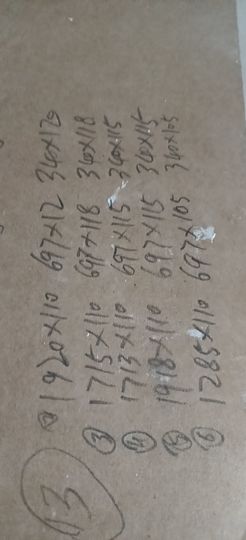 13
1920×110 697×12 340×120
③ 1715×110 697×118 340×118
④ 1713×110 697×115 340×115
⑤ 1918×110 697×115 340×115
⑥ 1285×110 697×105 340×105